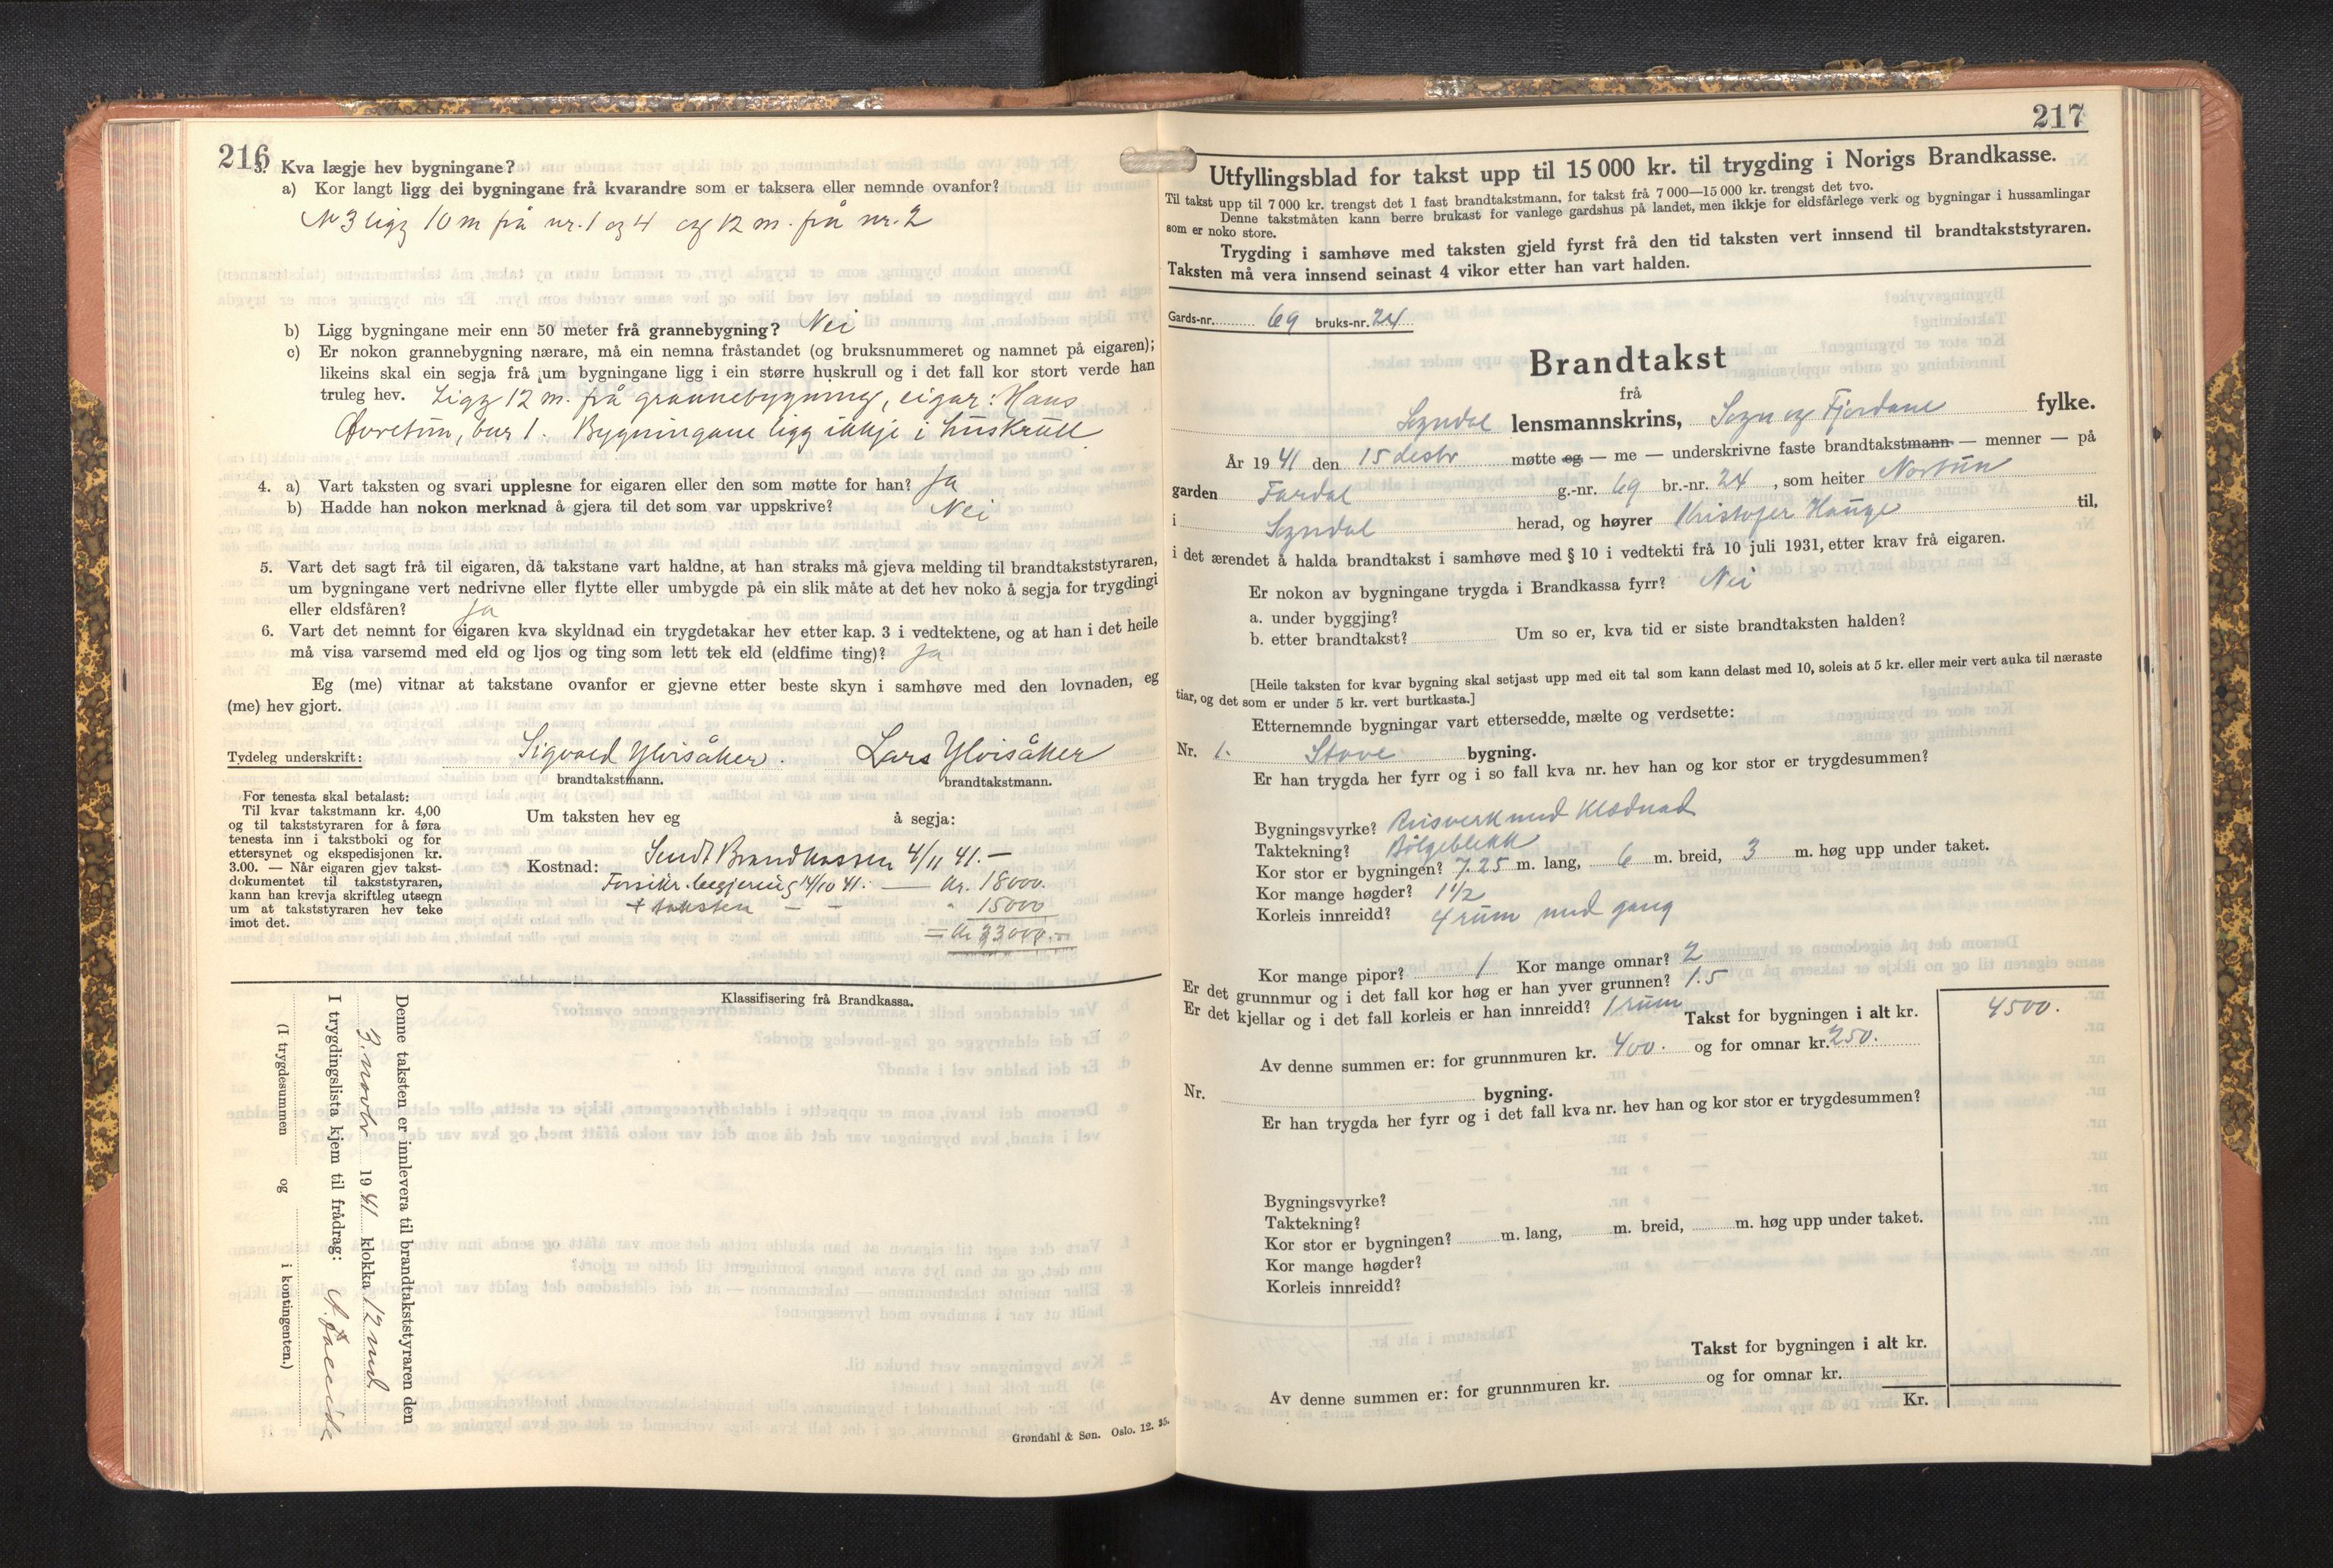 216
3. Kva lægje hev bygningane?
a) Kor langt ligg dei bygningane frå kvarandre som er taksera eller nemnde ovanfor?
N 3 ligg 10 m frå nr. 1 og 4 og 12 m. frå nr. 2
b) Ligg bygningane meir enn 50 meter frå grannebygning? Nei
c) Er nokon grannebygning nærare, må ein nemna fråstandet (og bruksnummeret og namnet på eigaren);
likeins skal ein segja frå um bygningane ligg i ein større huskrull og i det fall kor stort verde han
truleg hev. Ligg 12 m. frå grannebygning, eigar: Hans
Øvretun, bnr 1. Bygningane ligg ikkje i huskrull
4. a) Vart taksten og svari upplesne for eigaren eller den som møtte for han? Ja
b) Hadde han nokon merknad å gjera til det som var uppskrive? Nei
5. Vart det sagt frå til eigaren, då takstane vart haldne, at han straks må gjeva melding til brandtakststyraren,
um bygningane vert nedrivne eller flytte eller umbygde på ein slik måte at det hev noko å segja for trygdingi
eller eldsfåren? Ja
6. Vart det nemnt for eigaren kva skyldnad ein trygdetakar hev etter kap. 3 i vedtektene, og at han i det heile
må visa varsemd med eld og ljos og ting som lett tek eld (eldfime ting)? Ja
Eg (me) vitnar at takstane ovanfor er gjevne etter beste skyn i samhøve med den lovnaden, eg
(me) hev gjort.
Tydeleg underskrift: Sigvald Ylvisåker. Lars Ylvisåker
brandtakstmann. brandtakstmann.
For tenesta skal betalast:
Til kvar takstmann kr. 4,00
og til takststyraren for å føra
tenesta inn i takstboki og for
ettersynet og ekspedisjonen kr.
3.00. — Når eigaren gjev takst-
dokumentet til takststyraren,
kann han krevja skriftleg utsegn
um at takststyraren hev teke
imot det.
Um taksten hev eg å segja:
Sendt Brandkassen 4/11 41.—
Kostnad:
Forsikr. begjering 14/10 41. — kr. 18000.
+ taksten — — " 15000
= kr 33000.—
Klassifisering frå Brandkassa.
Denne taksten er innlevera til brandtakststyraren den
3. novbr 1941 klokka 12 mid
I trygdingslista kjem til frådrag:
(I trygdesummen og i kontingenten.)
Grøndahl & Søn. Oslo. 12. 35.
217
Utfyllingsblad for takst upp til 15 000 kr. til trygding i Norigs Brandkasse.
Til takst upp til 7 000 kr. trengst det 1 fast brandtakstmann, for takst frå 7 000—15 000 kr. trengst det tvo.
Denne takstmåten kann berre brukast for vanlege gardshus på landet, men ikkje for eldsfårlege verk og bygningar i hussamlingar
som er noko store.
Trygding i samhøve med taksten gjeld fyrst frå den tid taksten vert innsend til brandtakststyraren.
Taksten må vera innsend seinast 4 vikor etter han vart halden.
Gards-nr. 69 bruks-nr. 24
Brandtakst
frå
Sogndal lensmannskrins, Sogn og Fjordane fylke.
År 1941 den 15 desbr møtte eg — me — underskrivne faste brandtakstmann — menner — på
garden Fardal g.-nr. 69 br.-nr. 24, som heiter Nortun
i Sogndal herad, og høyrer Kristofer Hauge til,
i det ærendet å halda brandtakst i samhøve med § 10 i vedtekti frå 10 juli 1931, etter krav frå eigaren.
Er nokon av bygningane trygda i Brandkassa fyrr? Nei
a. under byggjing?
b. etter brandtakst? Um so er, kva tid er siste brandtaksten halden?
[Heile taksten for kvar bygning skal setjast upp med eit tal som kann delast med 10, soleis at 5 kr. eller meir vert auka til næraste
tiar, og det som er under 5 kr. vert burtkasta.]
Etternemnde bygningar vart ettersedde, mælte og verdsette:
Nr. 1. Stove bygning.
Er han trygda her fyrr og i so fall kva nr. hev han og kor stor er trygdesummen?
Bygningsvyrke? Reisverk med klædnad
Taktekning? Bølgeblekk
Kor stor er bygningen? 7.25 m. lang, 6 m. breid, 3 m. høg upp under taket.
Kor mange høgder? 1 1/2
Korleis innreidd? 4 rum med gang
Kor mange pipor? 1 Kor mange omnar? 2
Er det grunnmur og i det fall kor høg er han yver grunnen? 1.5
Er det kjellar og i det fall korleis er han innreidd? 1 rum
Takst for bygningen i alt kr. 4500.
Av denne summen er: for grunnmuren kr. 400. og for omnar kr. 250.
Nr. bygning.
Er han trygda her fyrr og i det fall kva nr. hev han og kor stor er trygdesummen?
Bygningsvyrke?
Taktekning?
Kor stor er bygningen? m. lang, m. breid, m. høg upp under taket.
Kor mange høgder?
Korleis innreidd?
Takst for bygningen i alt kr.
Av denne summen er: for grunnmuren kr. og for omnar kr.
Kr.